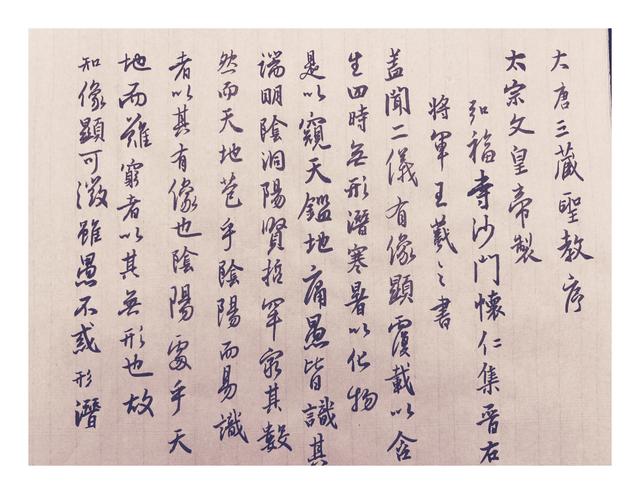 大唐三藏聖教序
太宗文皇帝製
弘福寺沙門懷仁集晋右
將軍王羲之書
蓋聞二儀有像顯覆載以含
生四時無形潛寒暑以化物
是以窺天鑑地庸愚皆識其
端明陰洞陽賢哲罕窮其數
然而天地苞乎陰陽而易識
者以其有像也陰陽處乎天
地而難窮者以其無形也故
知像顯可徵雖愚不惑形潛